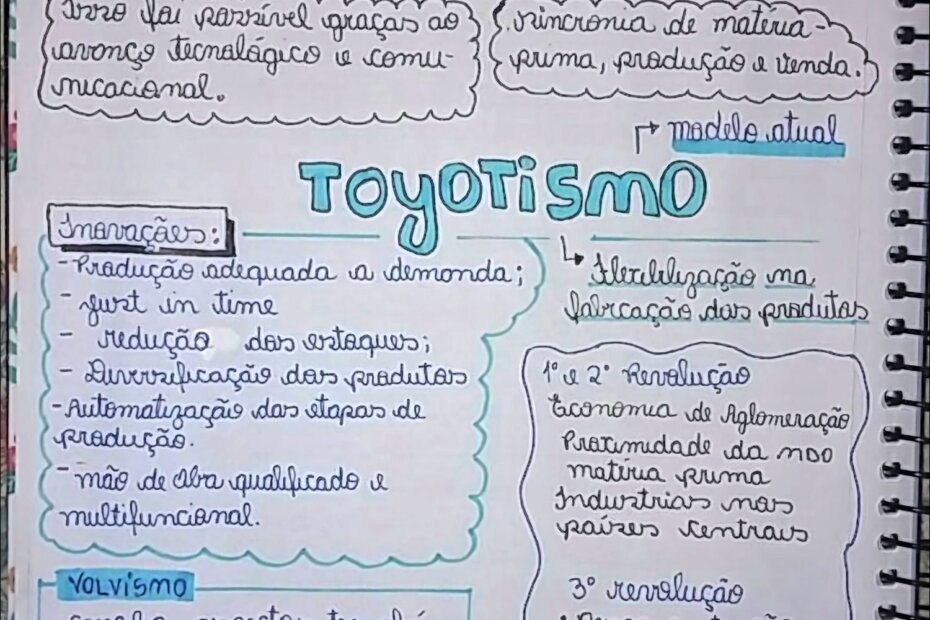 Isso foi possível graças ao
avonço tecnológico e comu-
nicacional.
sincronia de matéria-
prima, produção e venda.
modelo atual
TOYOTISMO
Inovações:
- Produção adequada a demonda;
- just in time
- redução dos estoques;
- Diversificação dos produtos
- Automatização das etapas de
produção.
- mão de obra qualificado e
multifuncional.
Flexibilização na
fabricação dos produtos
1º e 2º Revolução
Economia de Aglomeração
Proximidade da MDO
matéria prima
Industrias nos
países centrais
3º revolução
VOLVISMO